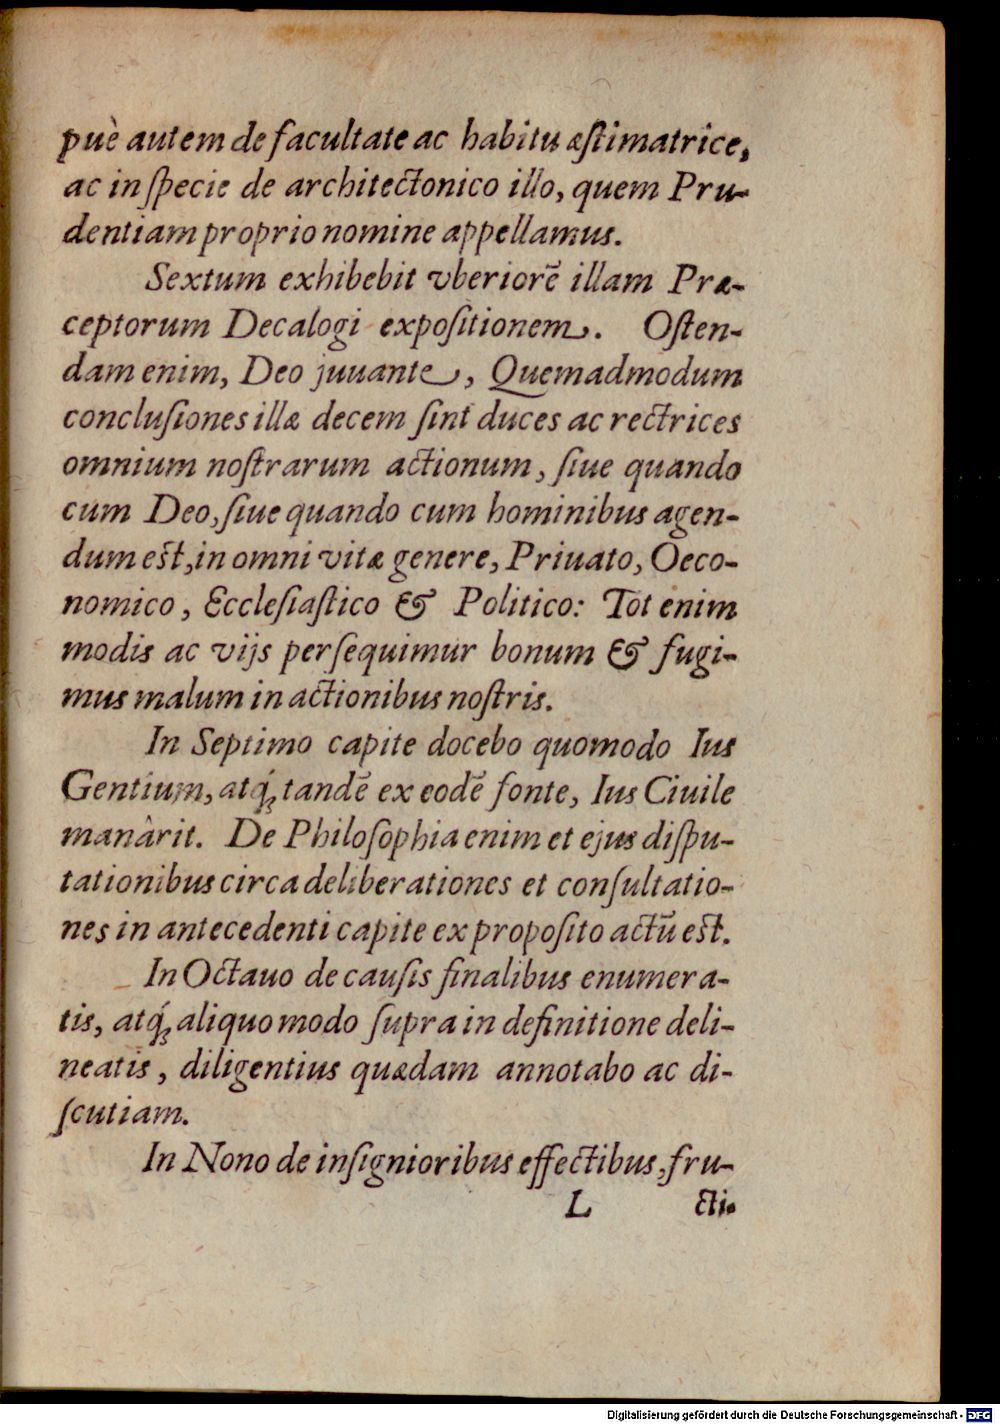 puè autem de facultate ac habitu æſtimatrice,
ac in ſpecie de architectonico illo, quem Pru-
dentiam proprio nomine appellamus.
Sextum exhibebit vberiorē illam Præ-
ceptorum Decalogi expoſitionem. Oſten-
dam enim, Deo juuante, Quemadmodum
concluſiones illæ decem ſint duces ac rectrices
omnium noſtrarum actionum, ſiue quando
cum Deo, ſiue quando cum hominibus agen-
dum eſt, in omni vitæ genere, Priuato, Oeco-
nomico, Eccleſiaſtico & Politico: Tot enim
modis ac vijs perſequimur bonum & fugi-
mus malum in actionibus noſtris.
In Septimo capite docebo quomodo Ius
Gentium, atq́; tandē ex eodē fonte, Ius Ciuile
manârit. De Philoſophia enim et ejus diſpu-
tationibus circa deliberationes et conſultatio-
nes in antecedenti capite ex propoſito actū eſt.
In Octauo de cauſis finalibus enumera-
tis, atq́; aliquo modo ſupra in definitione deli-
neatis, diligentius quædam annotabo ac di-
ſcutiam.
In Nono de inſignioribus effectibus, fru-
L cti-
Digitalisierung gefördert durch die Deutsche Forschungsgemeinschaft - DFG